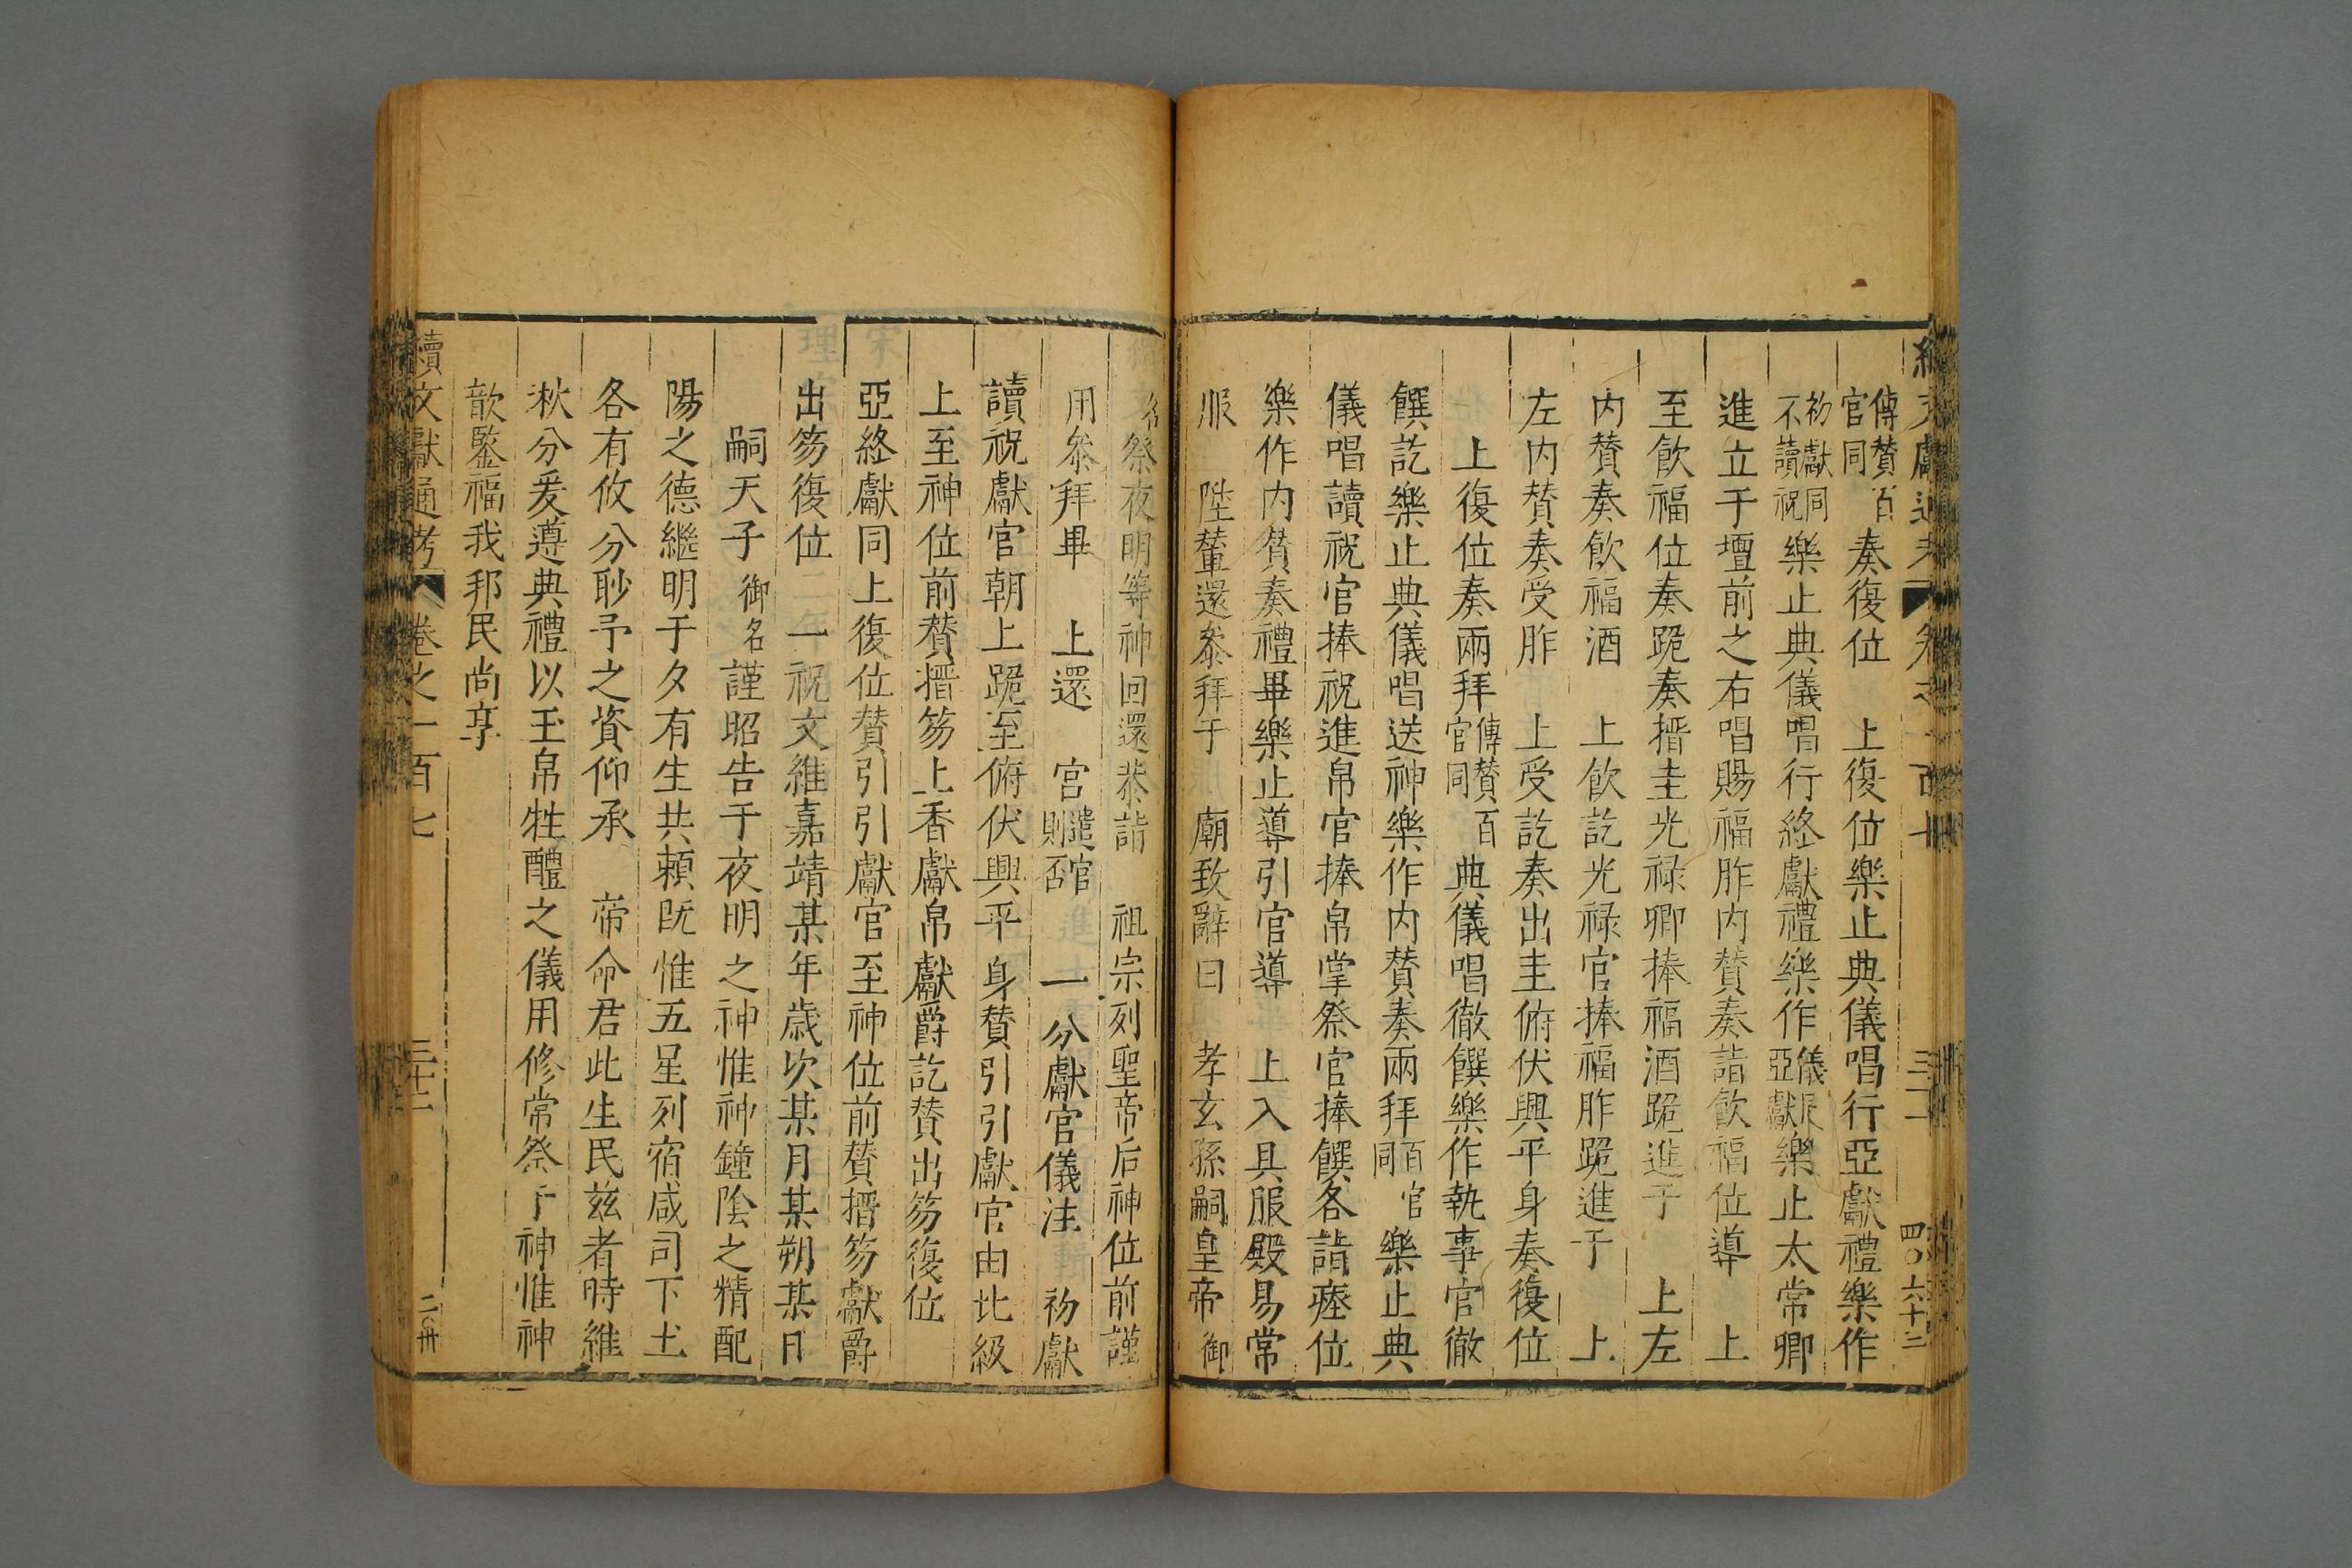 傳贊百官同奏復位　上復位樂止典儀唱行亞獻禮樂作
初獻同不讀祝樂止典儀唱行終獻禮樂作儀同亞獻樂止太常卿
進立于壇前之右唱賜福胙内贊奏詣飲福位導　上
至飲福位奏跪奏搢圭光禄卿捧福酒跪進于　上左
内贊奏飲福酒　上飲訖光禄官捧福胙跪進于　上
左内贊奏受胙　上受訖奏出圭俯伏興平身奏復位
上復位奏兩拜傳贊百官同典儀唱徹饌樂作執事官徹
饌訖樂止典儀唱送神樂作内贊奏兩拜百官同樂止典
儀唱讀祝官捧祝進帛官捧帛掌祭官捧饌各詣瘞位
樂作内贊奏禮畢樂止導引官導　上入具服殿易常
服　陞輦還參拜于　廟致辭曰　孝玄孫嗣皇帝御
名祭夜明等神回還恭詣　祖宗列聖帝后神位前謹
用參拜畢　上還　宮　一分獻官儀注　初獻
讀祝獻官朝上跪至俯伏興平身贊引引獻官由北級
上至神位前贊搢笏上香獻帛獻爵訖贊出笏復位
亞終獻同上復位贊引引獻官至神位前贊搢笏獻爵
出笏復位　一祝文維嘉靖某年歲次某月某朔某日
嗣天子御名謹昭告于夜明之神惟神鐘陰之精配
陽之德繼明于夕有生共頼旣惟五星列宿咸司下土
各有攸分眇予之資仰承　帝命君此生民兹者時維
秋分爰遵典禮以玉帛牲醴之儀用修常祭于神惟神
歆鑒福我邦民尚享
續文獻通考　卷之一百七　三十二